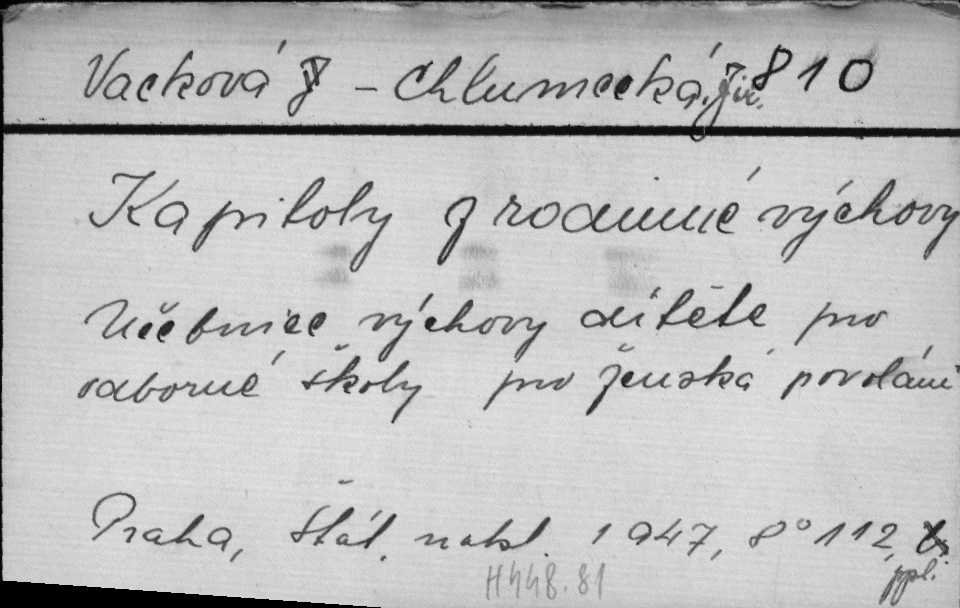 Vacková - Chlumecká, Jir. 810
Kapitoly z rodinné výchovy
Učebnice výchovy dítěte pro
odborné školy pro ženská povolání
Praha, Stát. nakl. 1947, 8° 112,
ppl.
H448.81